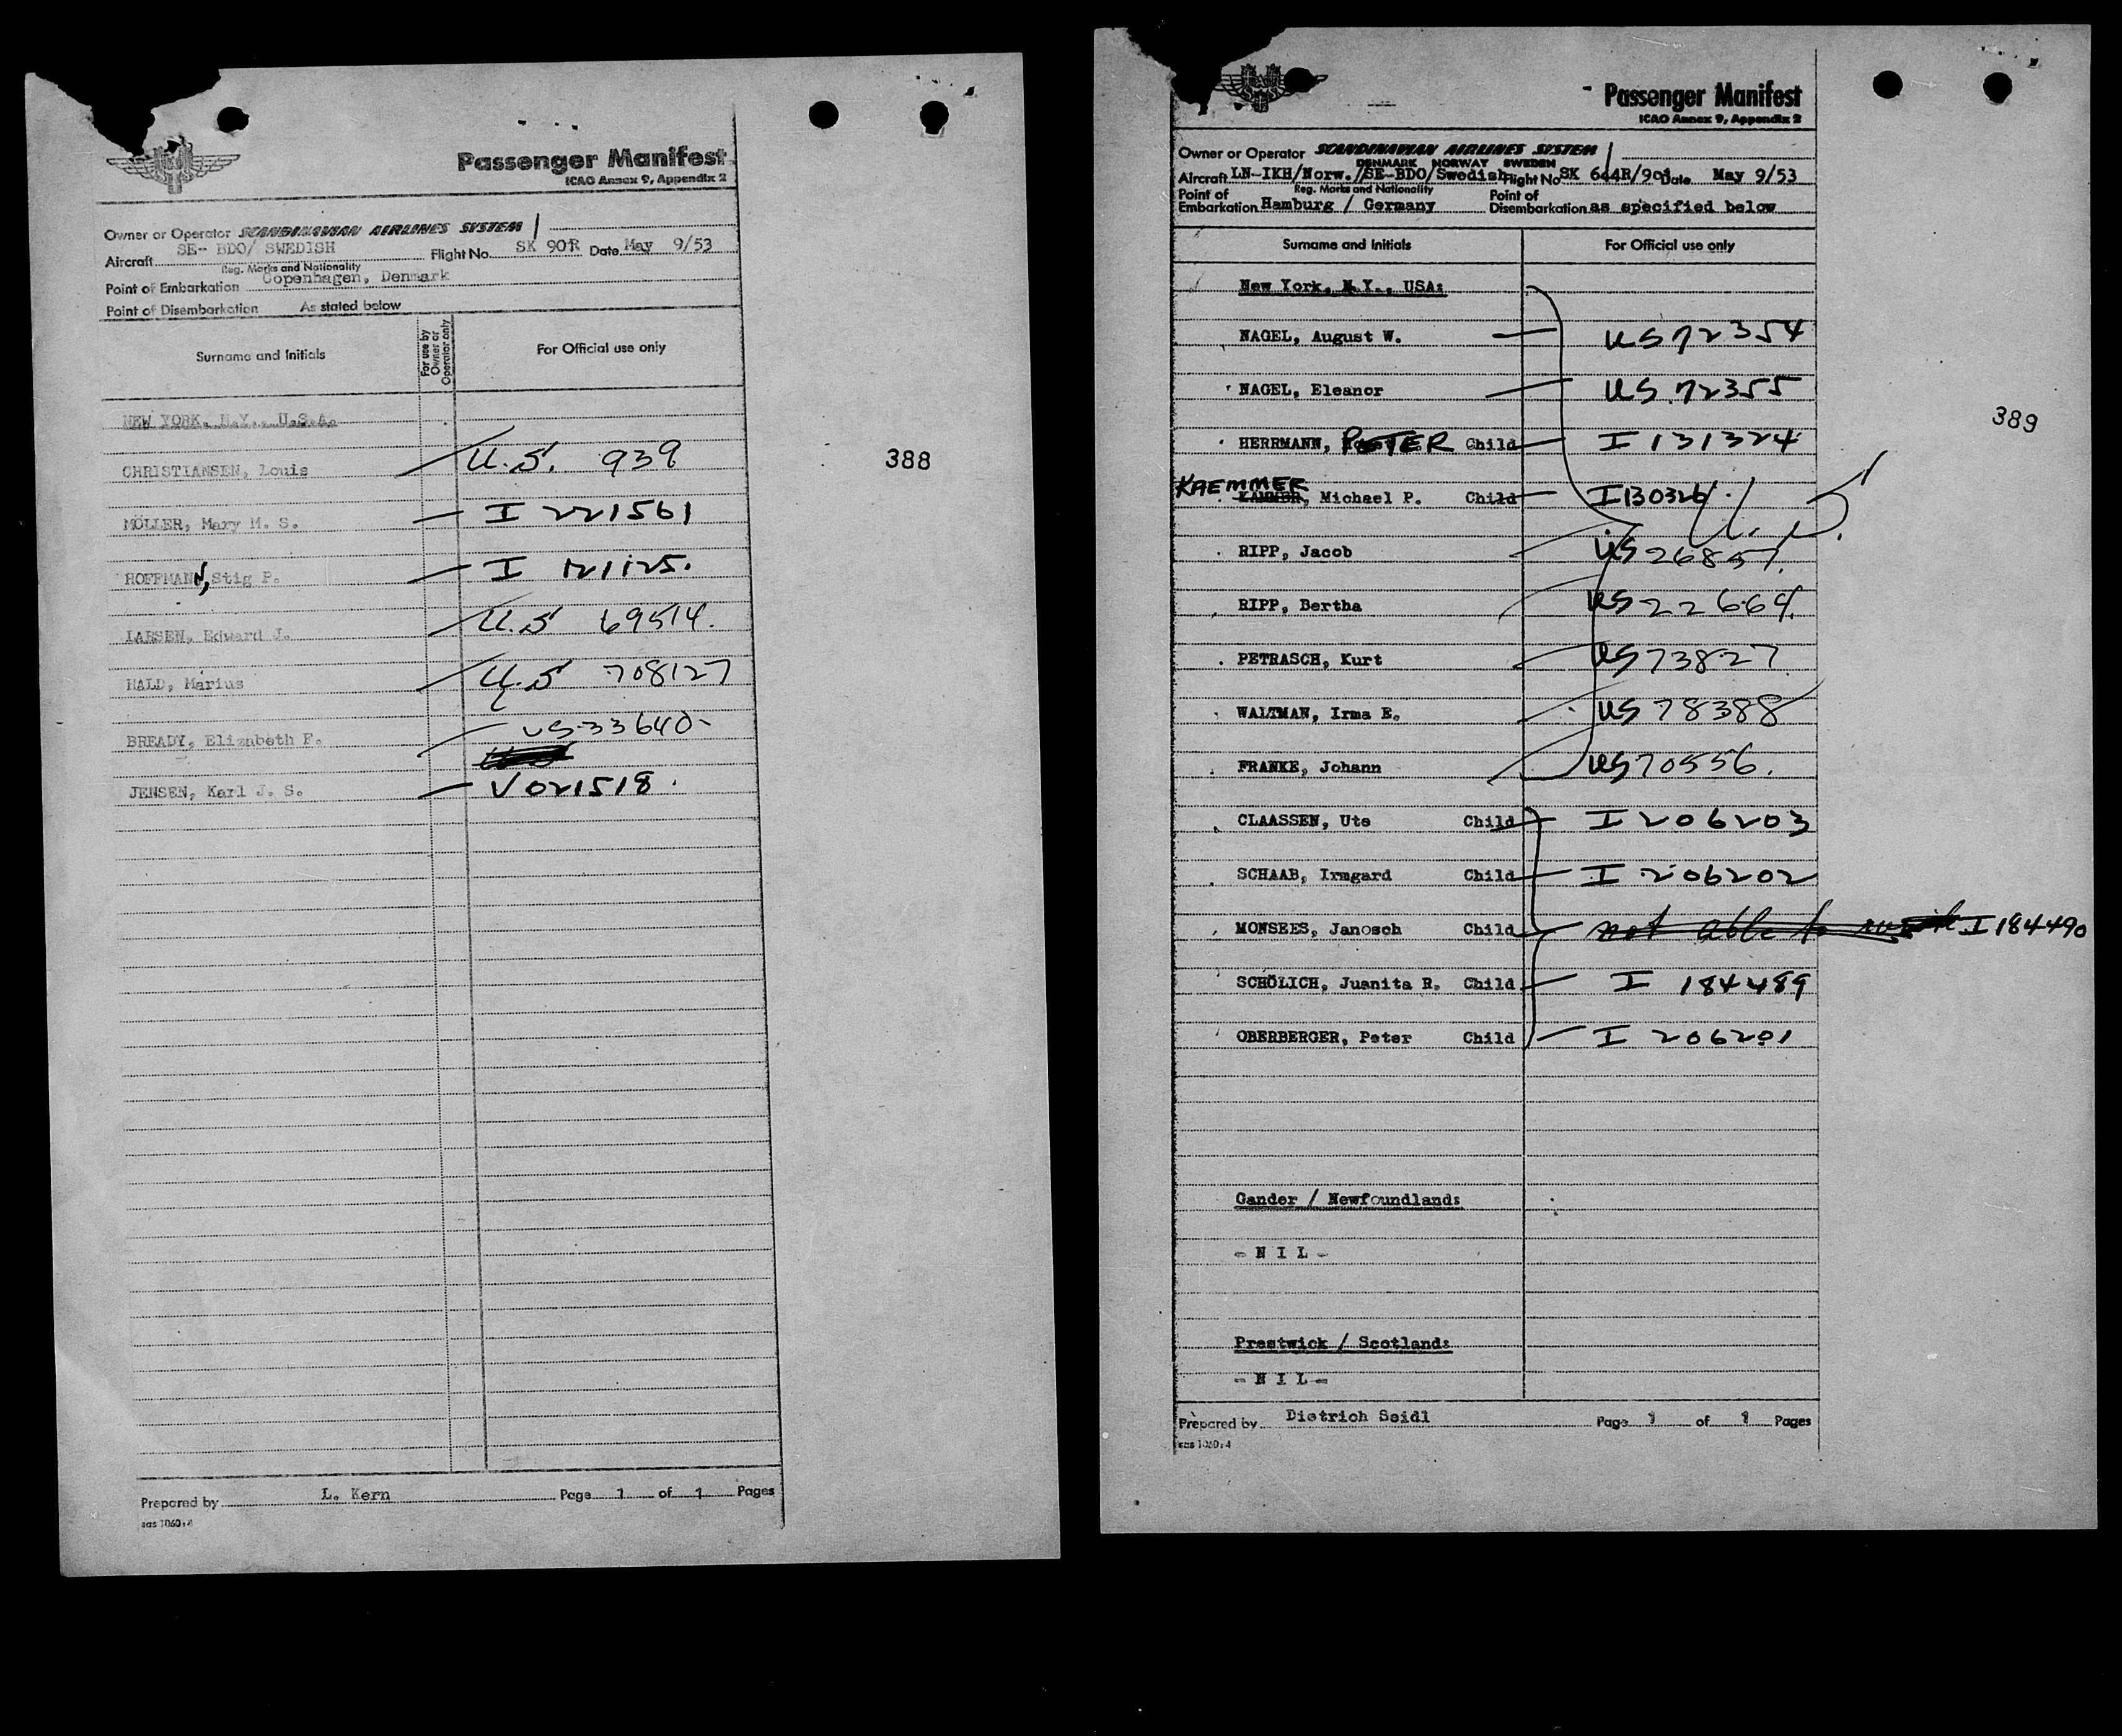 Passenger Manifest
ICAO Annex 9, Appendix 2
Owner or Operator SCANDINAVIAN AIRLINES SYSTEM
Aircraft SE- BDO/ SWEDISH Flight No. SK 901R Date May 9/53
Reg. Marks and Nationality
Point of Embarkation Copenhagen, Denmark
Point of Disembarkation As stated below
Surname and Initials For use by Owner or Operator only For Official use only
NEW YORK, N.Y., U.S.A.
CHRISTIANSEN, Louis U.S. 939
MÖLLER, Mary M. S. I 221561
HOFFMANN, Stig P. I 121125.
LARSEN, Edward J. U.S 69514.
HALD, Marius U.S 708127
BREADY, Elizabeth F. US 33640-
JENSEN, Karl J. S. V021518.
388
Prepared by L. Kern Page 1 of 1 Pages
sas 1060:4
Passenger Manifest
ICAO Annex 9, Appendix 2
Owner or Operator SCANDINAVIAN AIRLINES SYSTEM
DENMARK NORWAY SWEDEN
Aircraft LN-IKH/Norw.//SE-BDO/Swedish Flight No SK 644R/901 Date May 9/53
Reg. Marks and Nationality
Point of Embarkation Hamburg / Germany Point of Disembarkation as specified below
Surname and Initials For Official use only
New York, N.Y., USA:
NAGEL, August W. US 72354
NAGEL, Eleanor US 72355
389
HERRMANN, PETER Child I 131324
KAEMMER
KAMMER, Michael P. Child I130326
U.S.
RIPP, Jacob US 26857.
RIPP, Bertha US 22664.
PETRASCH, Kurt US 73827
WALTMAN, Irma E. US 78388
FRANKE, Johann US 70556.
CLAASSEN, Ute Child I 206203
SCHAAB, Irmgard Child I 206202
MONSEES, Janosch Child not able to I 184490
SCHÖLICH, Juanita R. Child I 184489
OBERBERGER, Peter Child I 206201
Gander / Newfoundland:
- N I L -
Prestwick / Scotland:
- N I L -
Prepared by Dietrich Seidl Page 1 of 1 Pages
sas 1060:4